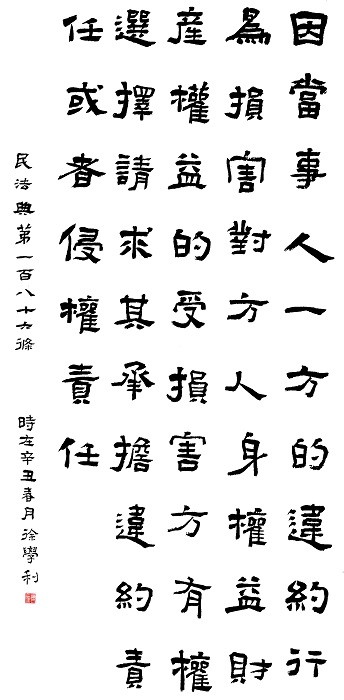 因當事人一方的違約行
爲損害對方人身權益財
産權益的受損害方有權
選擇請求其承擔違約責
任或者侵權責任
民法典第一百八十六條
時在辛丑春月徐學利